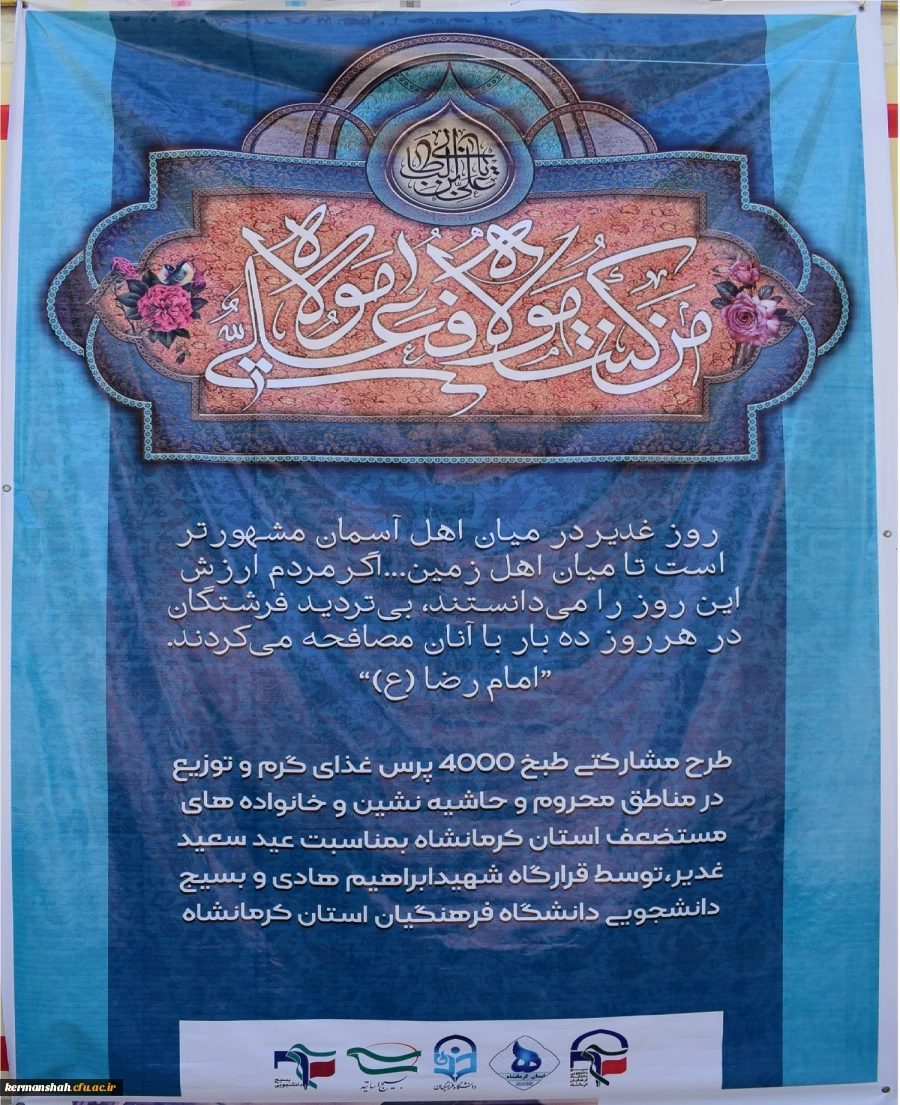 یا علی بن ابی طالب
من کنت مولاه فعلی مولاه
روز غدیر در میان اهل آسمان مشهورتر
است تا میان اهل زمین...اگر مردم ارزش
این روز را می‌دانستند، بی‌تردید فرشتگان
در هر روز ده بار با آنان مصافحه می‌کردند.
”امام رضا (ع)“
طرح مشارکتی طبخ 4000 پرس غذای گرم و توزیع
در مناطق محروم و حاشیه نشین و خانواده های
مستضعف استان کرمانشاه بمناسبت عید سعید
غدیر،توسط قرارگاه شهیدابراهیم هادی و بسیج
دانشجویی دانشگاه فرهنگیان استان کرمانشاه
بسیج دانشجویی
بسیج اساتید
دانشگاه فرهنگیان
استان کرمانشاه
kermanshah.cfu.ac.ir